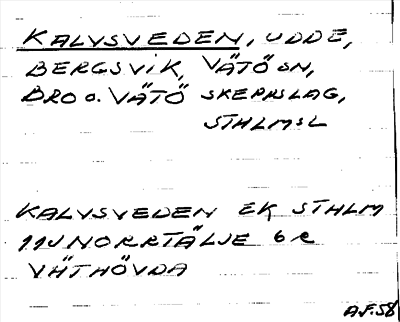 KALVSVEDEN, UDDE,
BERGSVIK, VÄTÖ SN,
BRO O. VÄTÖ SKEPPSLAG,
STHLMSL
KALVSVEDEN EK STHLM
11J NORRTÄLJE 6 R
VÄTHÖVDA
A.F.58